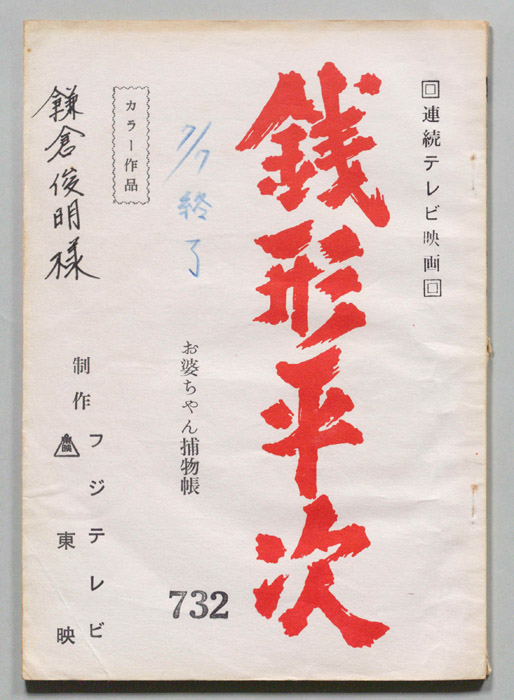 回連続テレビ映画回
銭形平次
お婆ちゃん捕物帳
732
7/7終了
カラー作品
鎌倉俊明様
制作
フジテレビ
東映